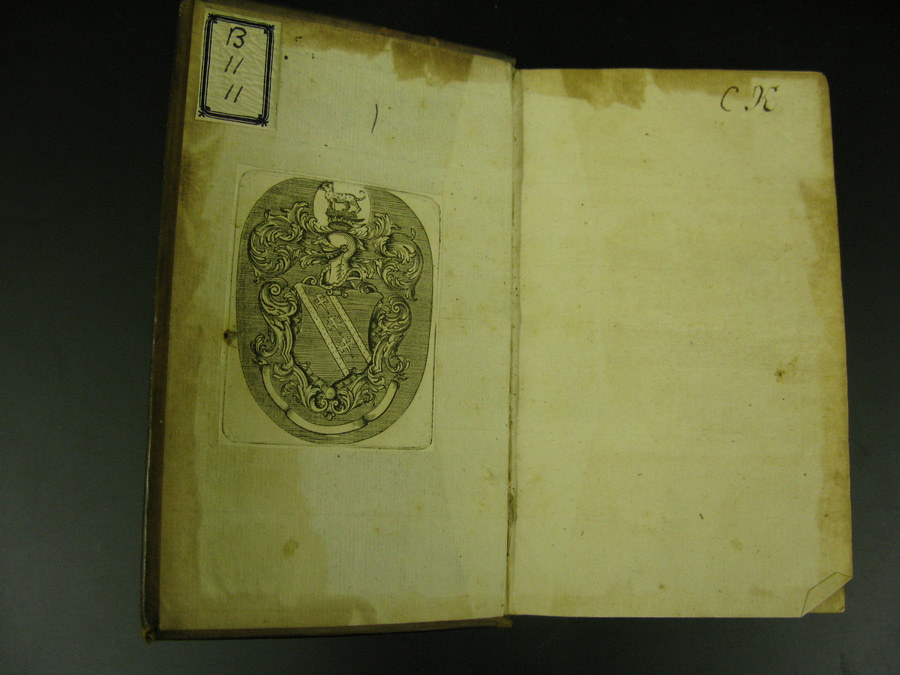 B
11
11
C K